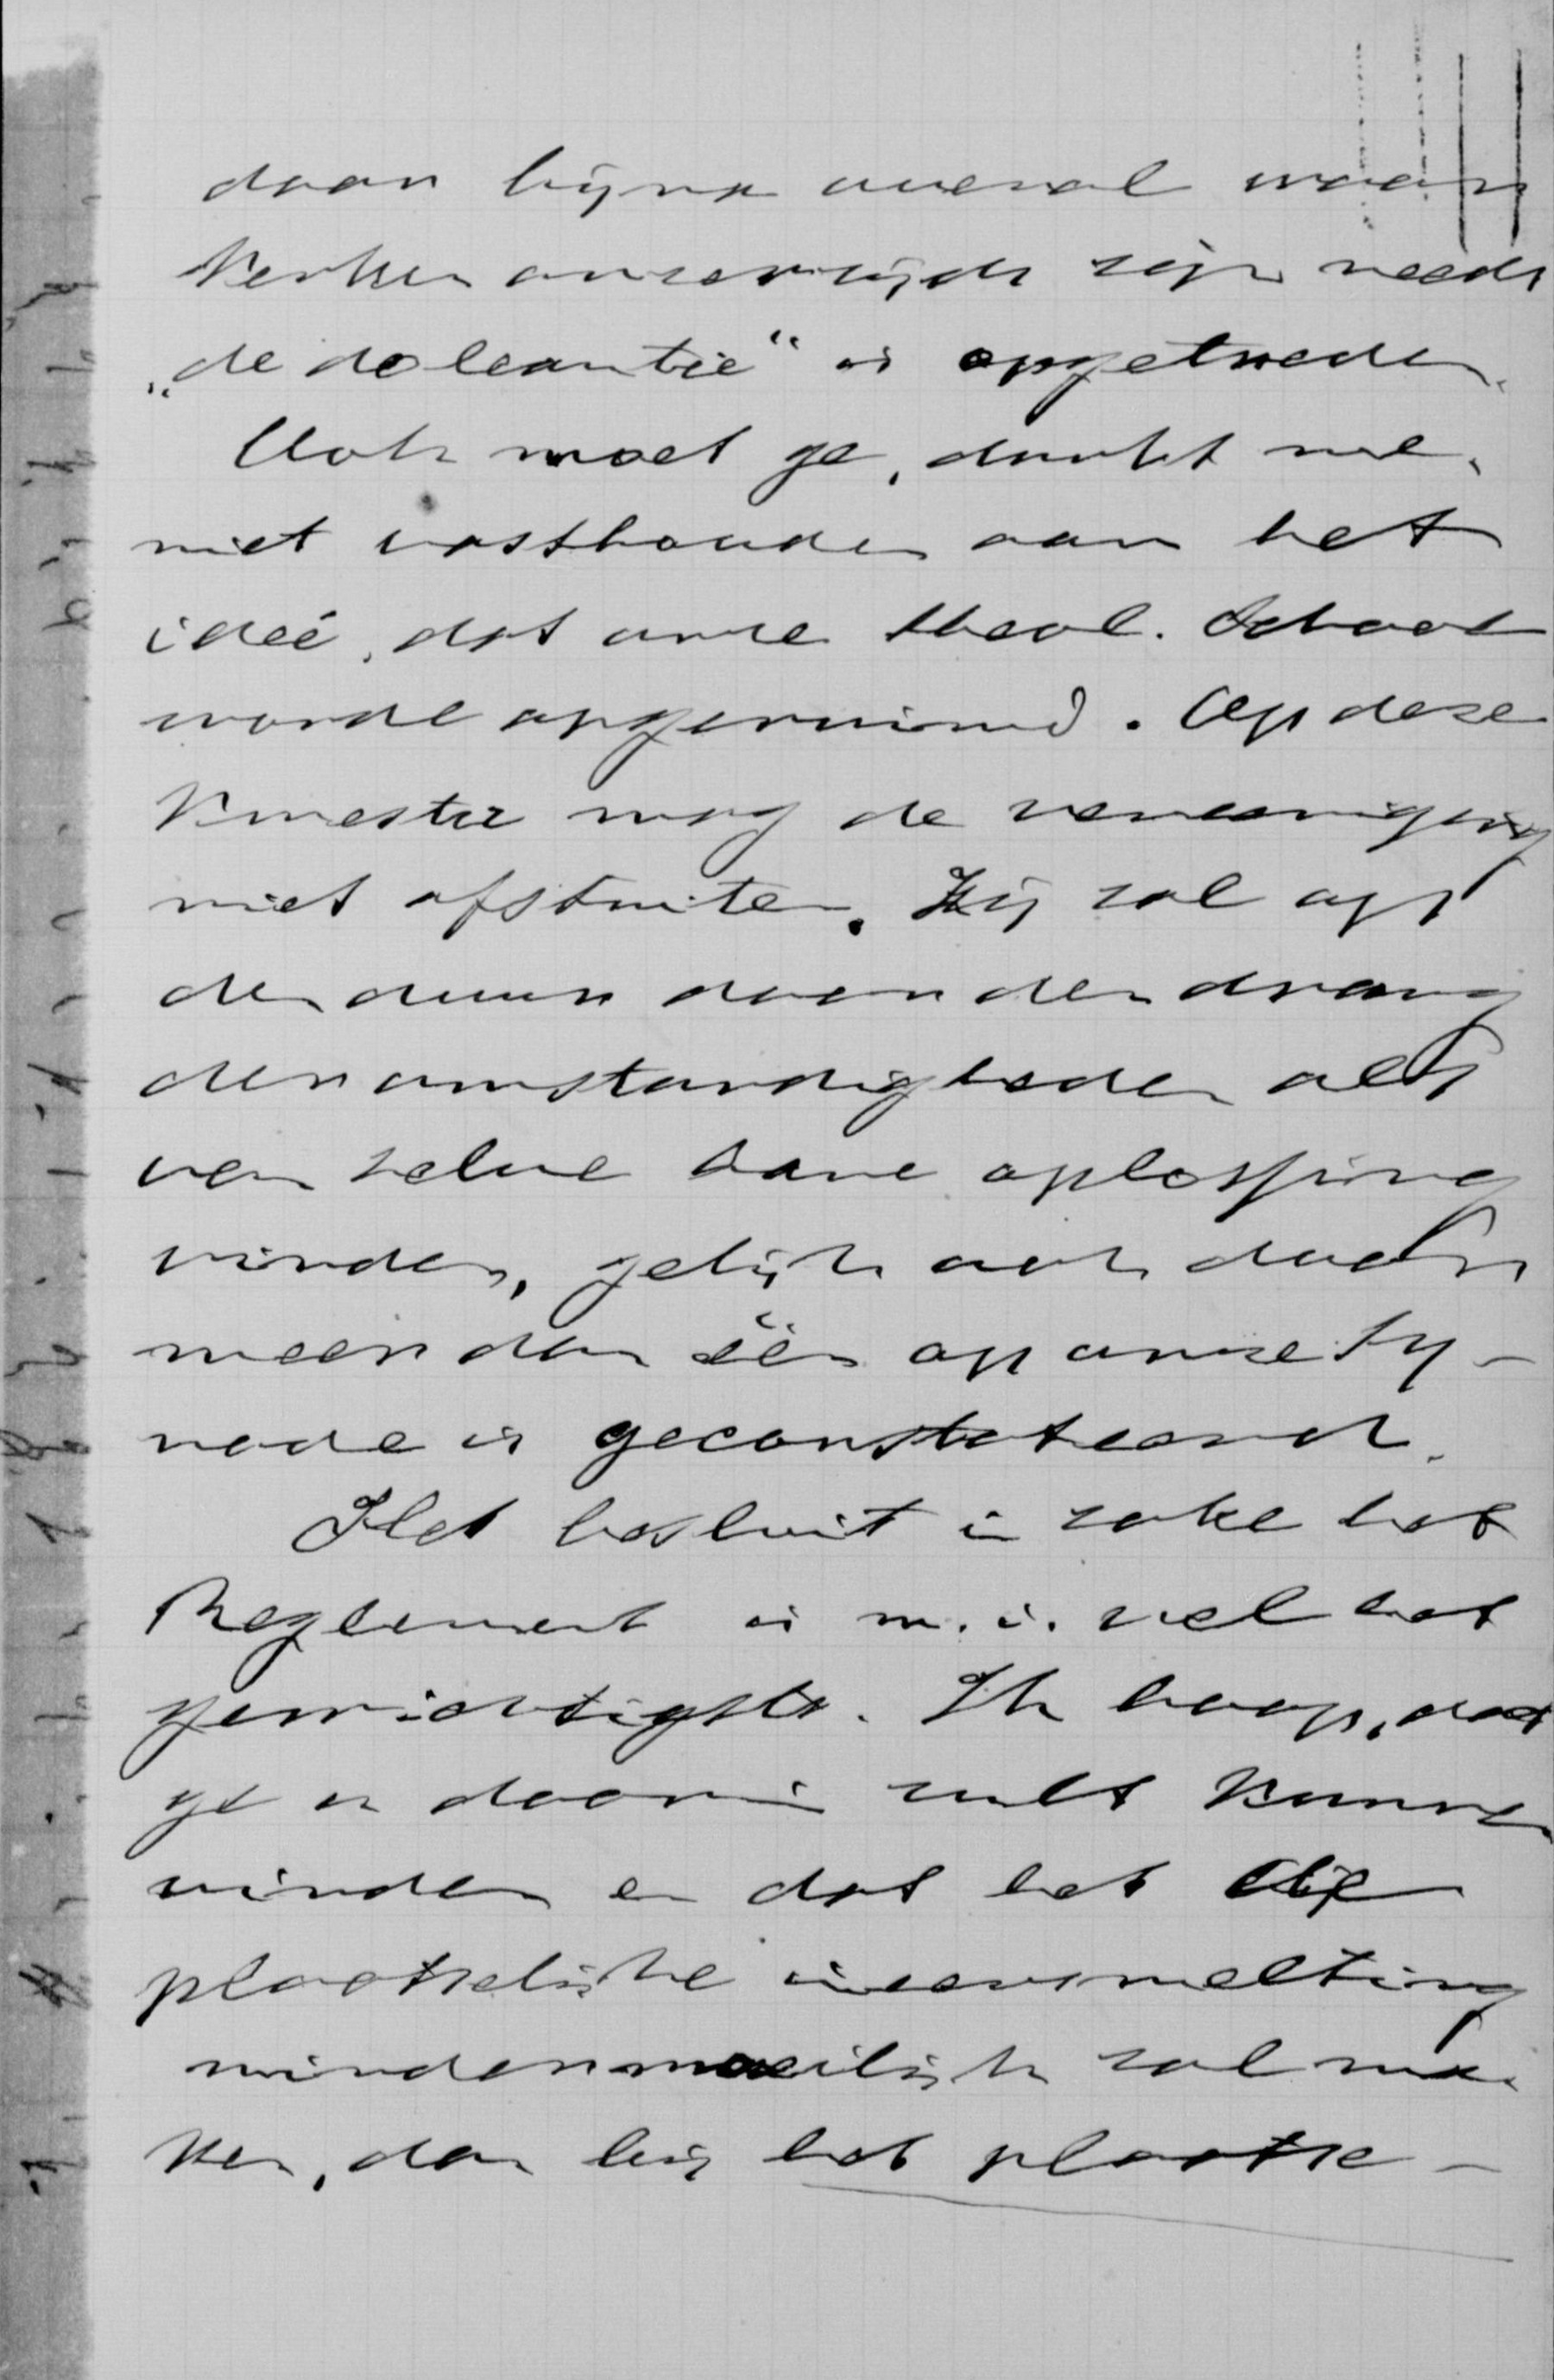 daar bijna overal waar
Kerken onzerzijds zijn reeds
„de doleantie" is opgetreden.
Ook moet ge, dunkt me,
niet vasthouden aan het
ideé, dat onze theol. School
worde opgeruimd. Op deze
Kwestie mag de vereeniging
niet afstuiten. Zij zal op
den duur door den drang
der omstandigheden als
van zelve hare oplossing
vinden, gelijk ook door
meer dan één op onze Sy-
node is geconstateerd.
Het besluit in zake het
Reglement is m.i. wel het
gewichtigste. Ik hoop, dat
ge er daarin zult kunnen
vinden en dat het die
plaatselijke ineensmelting
minder moeilijk zal ma-
ken, dan bij het plaatse-